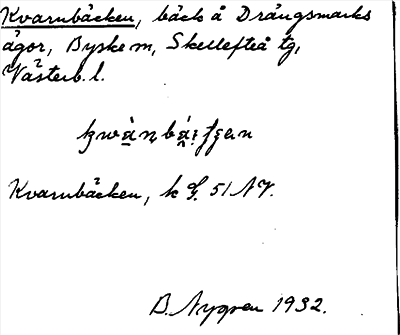 Kvarnbäcken, bäck å Drängsmarks
ägor, Byske sn, Skellefteå tg,
Västerb. l.
Kvarnbäcken, k G. 51 NV.
B. Nygren 1932.